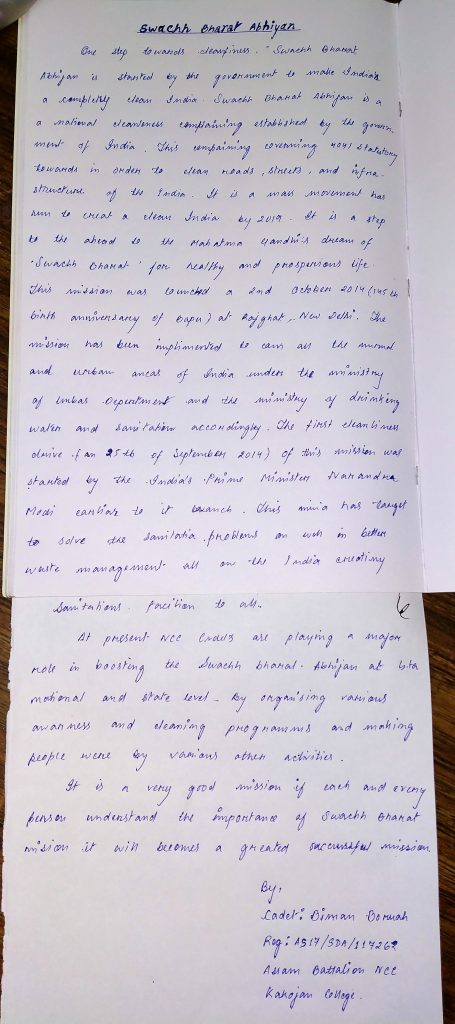 Swachh Bharat Abhiyan
One step towards cleanliness. "Swachh Bharat
Abhijan is started by the government to make India's
a completely clean India. Swachh Bharat Abhijan is a
a national cleanleness complaining established by the govern-
ment of India. This complaining coverning 4041 statutory
towards in order to clean roads, streets, and infra-
structure of the India. It is a mass movement has
run to creat a clean India by 2019. It is a step
to the ahead to the Mahatma Gandhi's dream of
"Swachh Bharat" for healthy and prosperious life.
This mission was lounched a 2nd October 2014 (145th
birth anniversary of Bapu) at Rajghat, New Delhi. The
mission has been implimented to all the
and urban areas of India under the ministry
of Department and the ministry of drinking
water and sanitation accordingly. The first cleanliness
drive (an 25th of September 2014) of this mission was
started by the India's Prime Minister Narandra
Modi to it This has target
to solve the problems as well in better
waste management all on the India creating
Sanitations. to all..
At present NCC Cadets are playing a major
role in boosting the Swachh Bharat. Abhijan at
national and state level. By organising various
awarness and cleaning programms and making
people were by various other activities.
It is a very good mission if each and every
person understand the importance of Swachh Bharat
mission it will becomes a greated successful mission
By,
Cadet: Diman Boruah
Reg: AS17/SDA/117262
Assam Battalion NCC
Kakojan College.